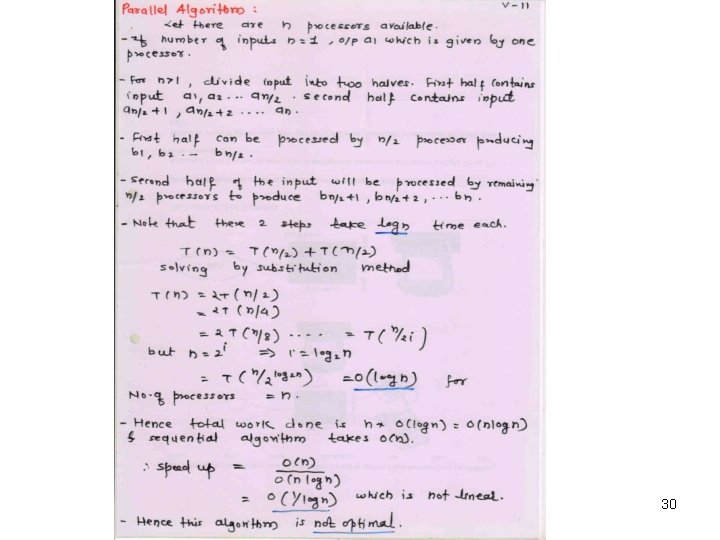 Parallel Algorithm :
V-11
Let there are n processors available.
- If number of inputs n=1 , o/p a1 which is given by one
processor.
- For n>1 , divide input into two halves. First half contains
input a1, a2 ... an/2 . second half contains input
an/2+1 , an/2+2 .... an.
- First half can be processed by n/2 processor producing
b1, b2 .-- bn/2.
- Second half of the input will be processed by remaining
n/2 processors to produce bn/2+1 , bn/2+2 , ... bn .
- Note that there 2 steps take logn time each.
T(n) = T(n/2) + T(n/2)
solving by substitution method
T(n) = 2T(n/2)
= 2T(n/4)
= 2T(n/8) .... = T(n/2i)
but n=2^i => i=log2n
= T(n/2^log2n) =O(logn) for
No-of processors = n.
- Hence total work done is n* O(logn) = O(nlogn)
& sequential algorithm takes O(n).
∴ speed up = O(n)
O(nlogn)
= O(1/logn) which is not linear.
- Hence this algorithm is not optimal.
30